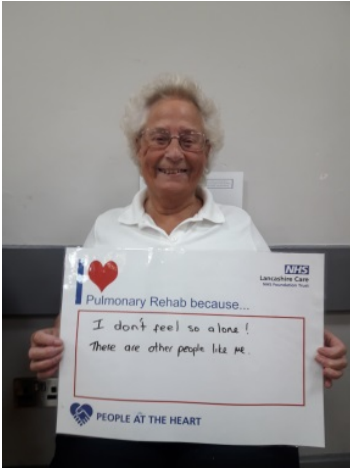 NHS
Lancashire Care
NHS Foundation Trust
I
Pulmonary Rehab because...
I don't feel so alone!
There are other people like me.
PEOPLE AT THE HEART